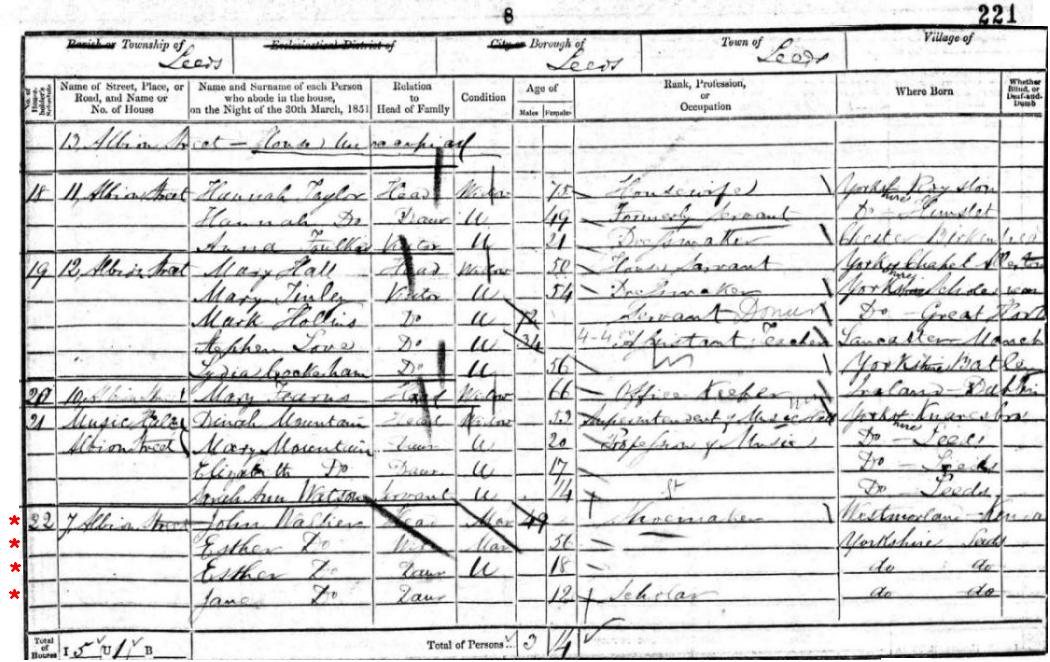 8 221
Parish or Township of Ecclesiastical District of City or Borough of Town of Village of
Leeds Leeds Leeds
No. of House-holder's Schedule Name of Street, Place, or Road, and Name or No. of House Name and Surname of each Person who abode in the house, on the Night of the 30th March, 1851 Relation to Head of Family Condition Age of Males Females Rank, Profession, or Occupation Where Born Whether Blind, or Deaf-and-Dumb
13, Albion Street — House Unoccupied
18 11, Albion Street Hannah Taylor Head Widow 75 Housewife Yorkshire Royston
Hannah Do Daur U 49 Formerly Servant Do - Hunslet
Anna Visitor U 21 Dressmaker Chester
19 12, Albion Street Mary Hall Head Widow 50 House Servant Yorkshire Chapel
Mary Finley Visitor U 54 Dressmaker Yorkshire
Mark Hollins Do U Servant Do - Great
Stephen Love Do U 34 4-4 Assistant Teacher Lancaster
Lydia Cockerham Do U 56 Yorkshire Batley
20 10, Albion Street Mary Fearns Head Widow 66 Office Keeper Ireland - Dublin
21 Music Hall Dinah Mountain Head Widow 52 Superintendent of Music Hall Yorkshire Knaresbro
Albion Street Mary Mountain Daur U 20 Professor of Music Do - Leeds
Elizabeth Do Daur U 17 Do - Leeds
Sarah Ann Watson Servant U 14 St Do - Leeds
* 22 7, Albion Street John Head Mar 49 Shoemaker Westmorland
* Esther Do Wife Mar Yorkshire Leeds
* Esther Do Daur U 18 do do
* Jane Do Daur 12 Scholar do do
Total of Houses I 5 U 1 B Total of Persons... 3 14